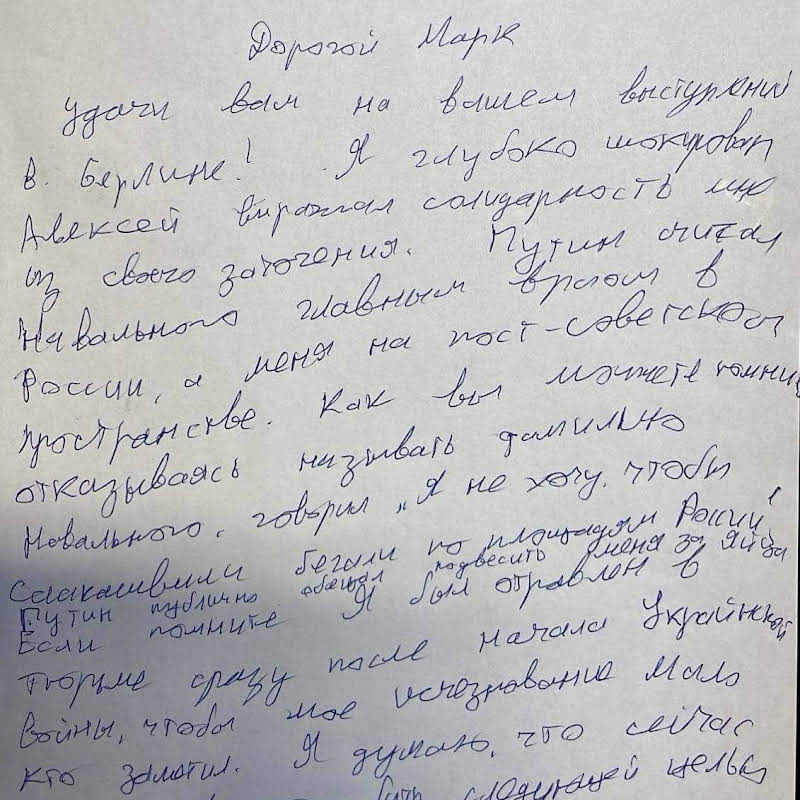 Дорогой Марк
Удачи вам на вашем выступлении
в Берлине! Я глубоко шокирован
Алексей выражал солидарность мне
из своего заточения. Путин считал
Навального главным врагом в
России, а меня на пост-советском
пространстве. Как вы можете помнить
отказываясь называть фамилию
Навального, говорил „Я не хочу, чтобы
Саакашвили бегали по площадям России"
Путин публично обещал подвесить меня за яйца
Если помните Я был отравлен в
тюрьме сразу после начала Украинской
войны, чтобы мое исчезнование мало
кто заметил. Я думаю, что сейчас
следующей целью